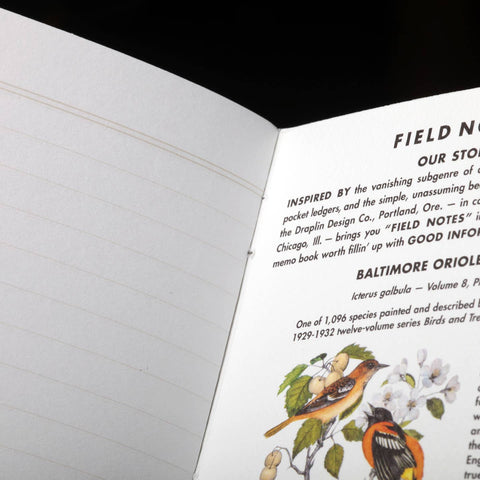 FIELD NO
OUR STO
INSPIRED BY the vanishing subgenre of
pocket ledgers, and the simple, unassuming be
the Draplin Design Co., Portland, Ore. — in c
Chicago, Ill. — brings you "FIELD NOTES" i
memo book worth fillin' up with GOOD INFOR
BALTIMORE ORIOLE
Icterus galbula — Volume 8, P
One of 1,096 species painted and described b
1929-1932 twelve-volume series Birds and Tre
f
an
the
Eng
true